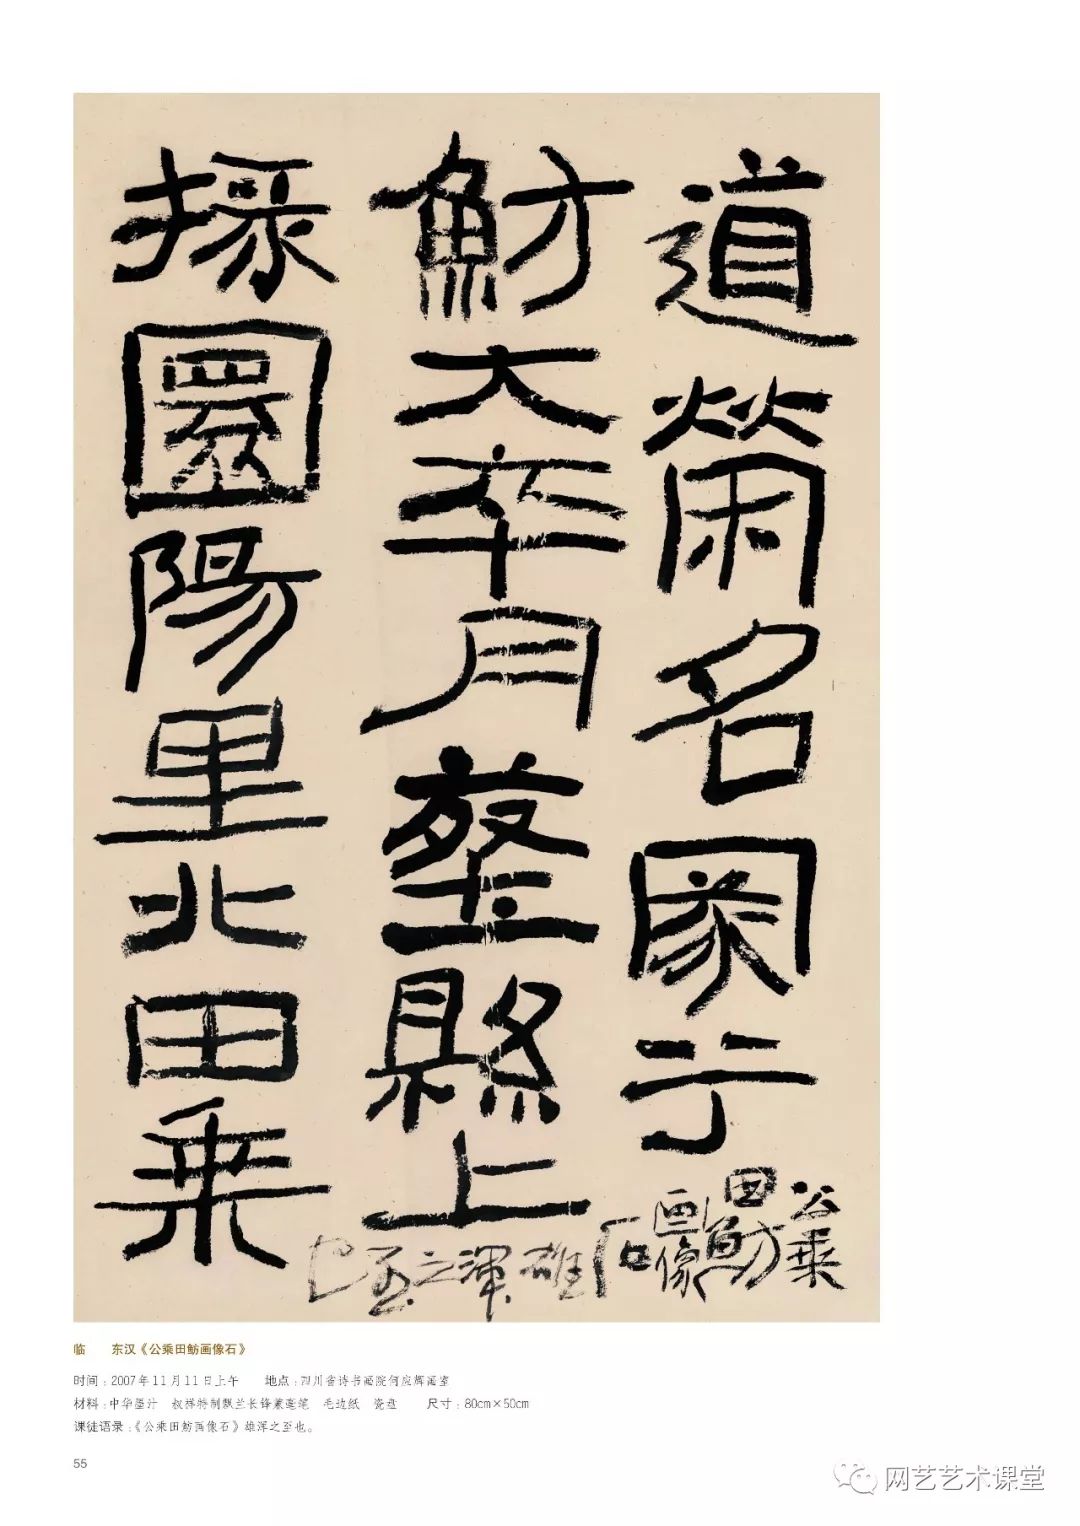 道榮名冢于
魴大年月塟縣上
掾圜陽里北田乘
公乘
田魴
画像
石
雄渾之至也
临 东汉《公乘田鲂画像石》
时间：2007年11月11日上午 地点：四川省诗书画院何应辉画室
材料：中华墨汁 叔祥特制飘兰长锋兼毫笔 毛边纸 瓷盘 尺寸：80cm×50cm
课徒语录：《公乘田鲂画像石》雄浑之至也。
55
网艺艺术课堂